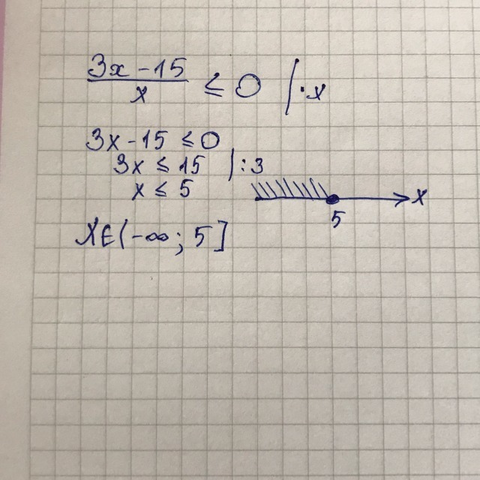 (3x - 15)/x ≤ 0 | · x
3x - 15 ≤ 0
3x ≤ 15 | : 3
x ≤ 5
x
5
X ∈ (-∞; 5]